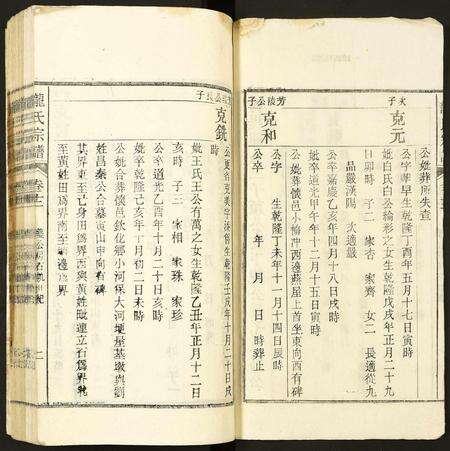 芳陵公子 次子
克元
公妣葬所失查
公字華早生乾隆丁酉年五月十七日寅時
妣白氏白公綸形之女生乾隆戊戌年正月二十九
日卯時 子二 家杏 家齊 女二 長適從九
品嚴漢陽 次適嚴
公卒嘉慶乙亥年四月十八日戌時
妣卒道光甲午年十二月十五日寅時
公妣葬懷邑小輪冲西邊燕屋上首坐東向西有碑
克和
公字 生乾隆丁未年十一月十四日辰時
公卒 年 月 日 時葬止
公長子
克銑
時
妣王氏王公有萬之女生乾隆乙丑年正月十二日
亥時 子三 家相 家珠 家珍
公卒道光乙酉年十月二十日亥時
妣卒乾隆己亥年十月初二日未時
公妣合葬懷邑欽化鄉小河保大河埂屋基墩與劉
姓昌秦公合墓寅山申向有碑
其界東至己身田爲界西至黃姓
至黃姓田爲界南至塘邊爲界
龍氏宗譜
卷之
二